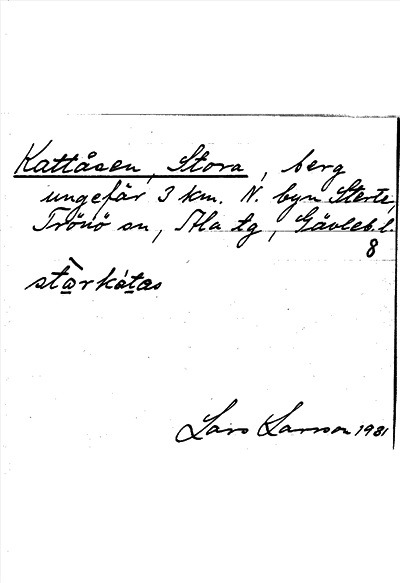 Kattåsen, Stora, berg
ungefär 3 km. N. byn Sterte,
Trönö sn, Ala tg, Gävleb. l.
8
stàrkátas
Lars Larsson 1931